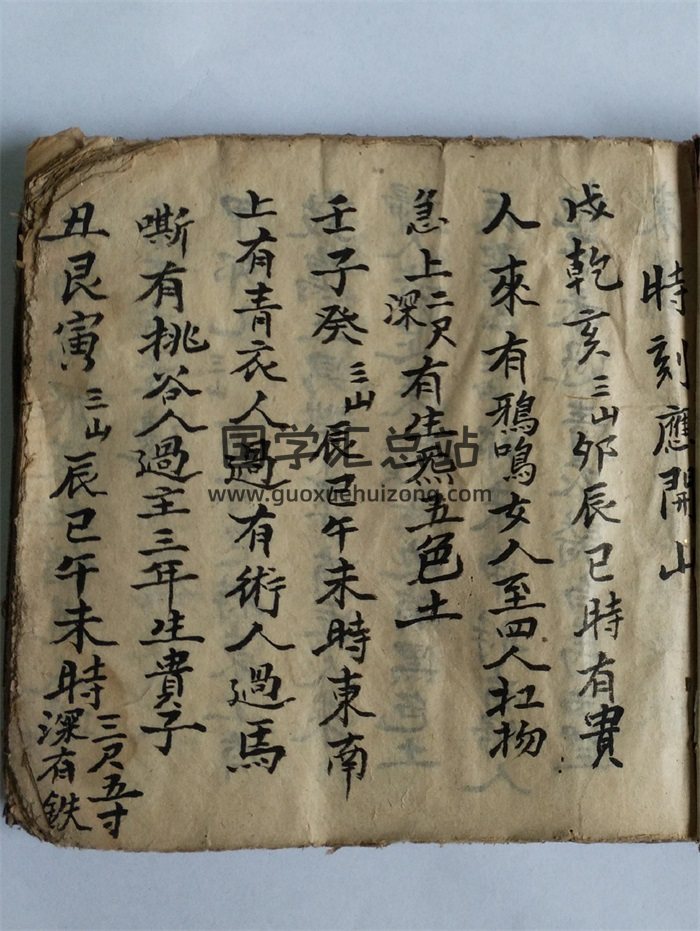 時刻應開山
戌乾亥三山卯辰巳時有貴
人來有鴉鳴女人至四人扛物
急上二尺深有生炁五色土
壬子癸三山辰巳午未時東南
上有青衣人過有術人過馬
嘶有挑谷人過主三年生貴子
丑艮寅三山辰巳午未時三尺五寸深有鉄
国学汇总站
www.guoxuehuizong.com